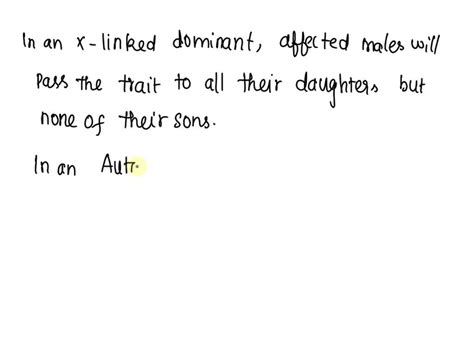 In an x-linked dominant, affected males will
pass the trait to all their daughters but
none of their sons.
In an Aut